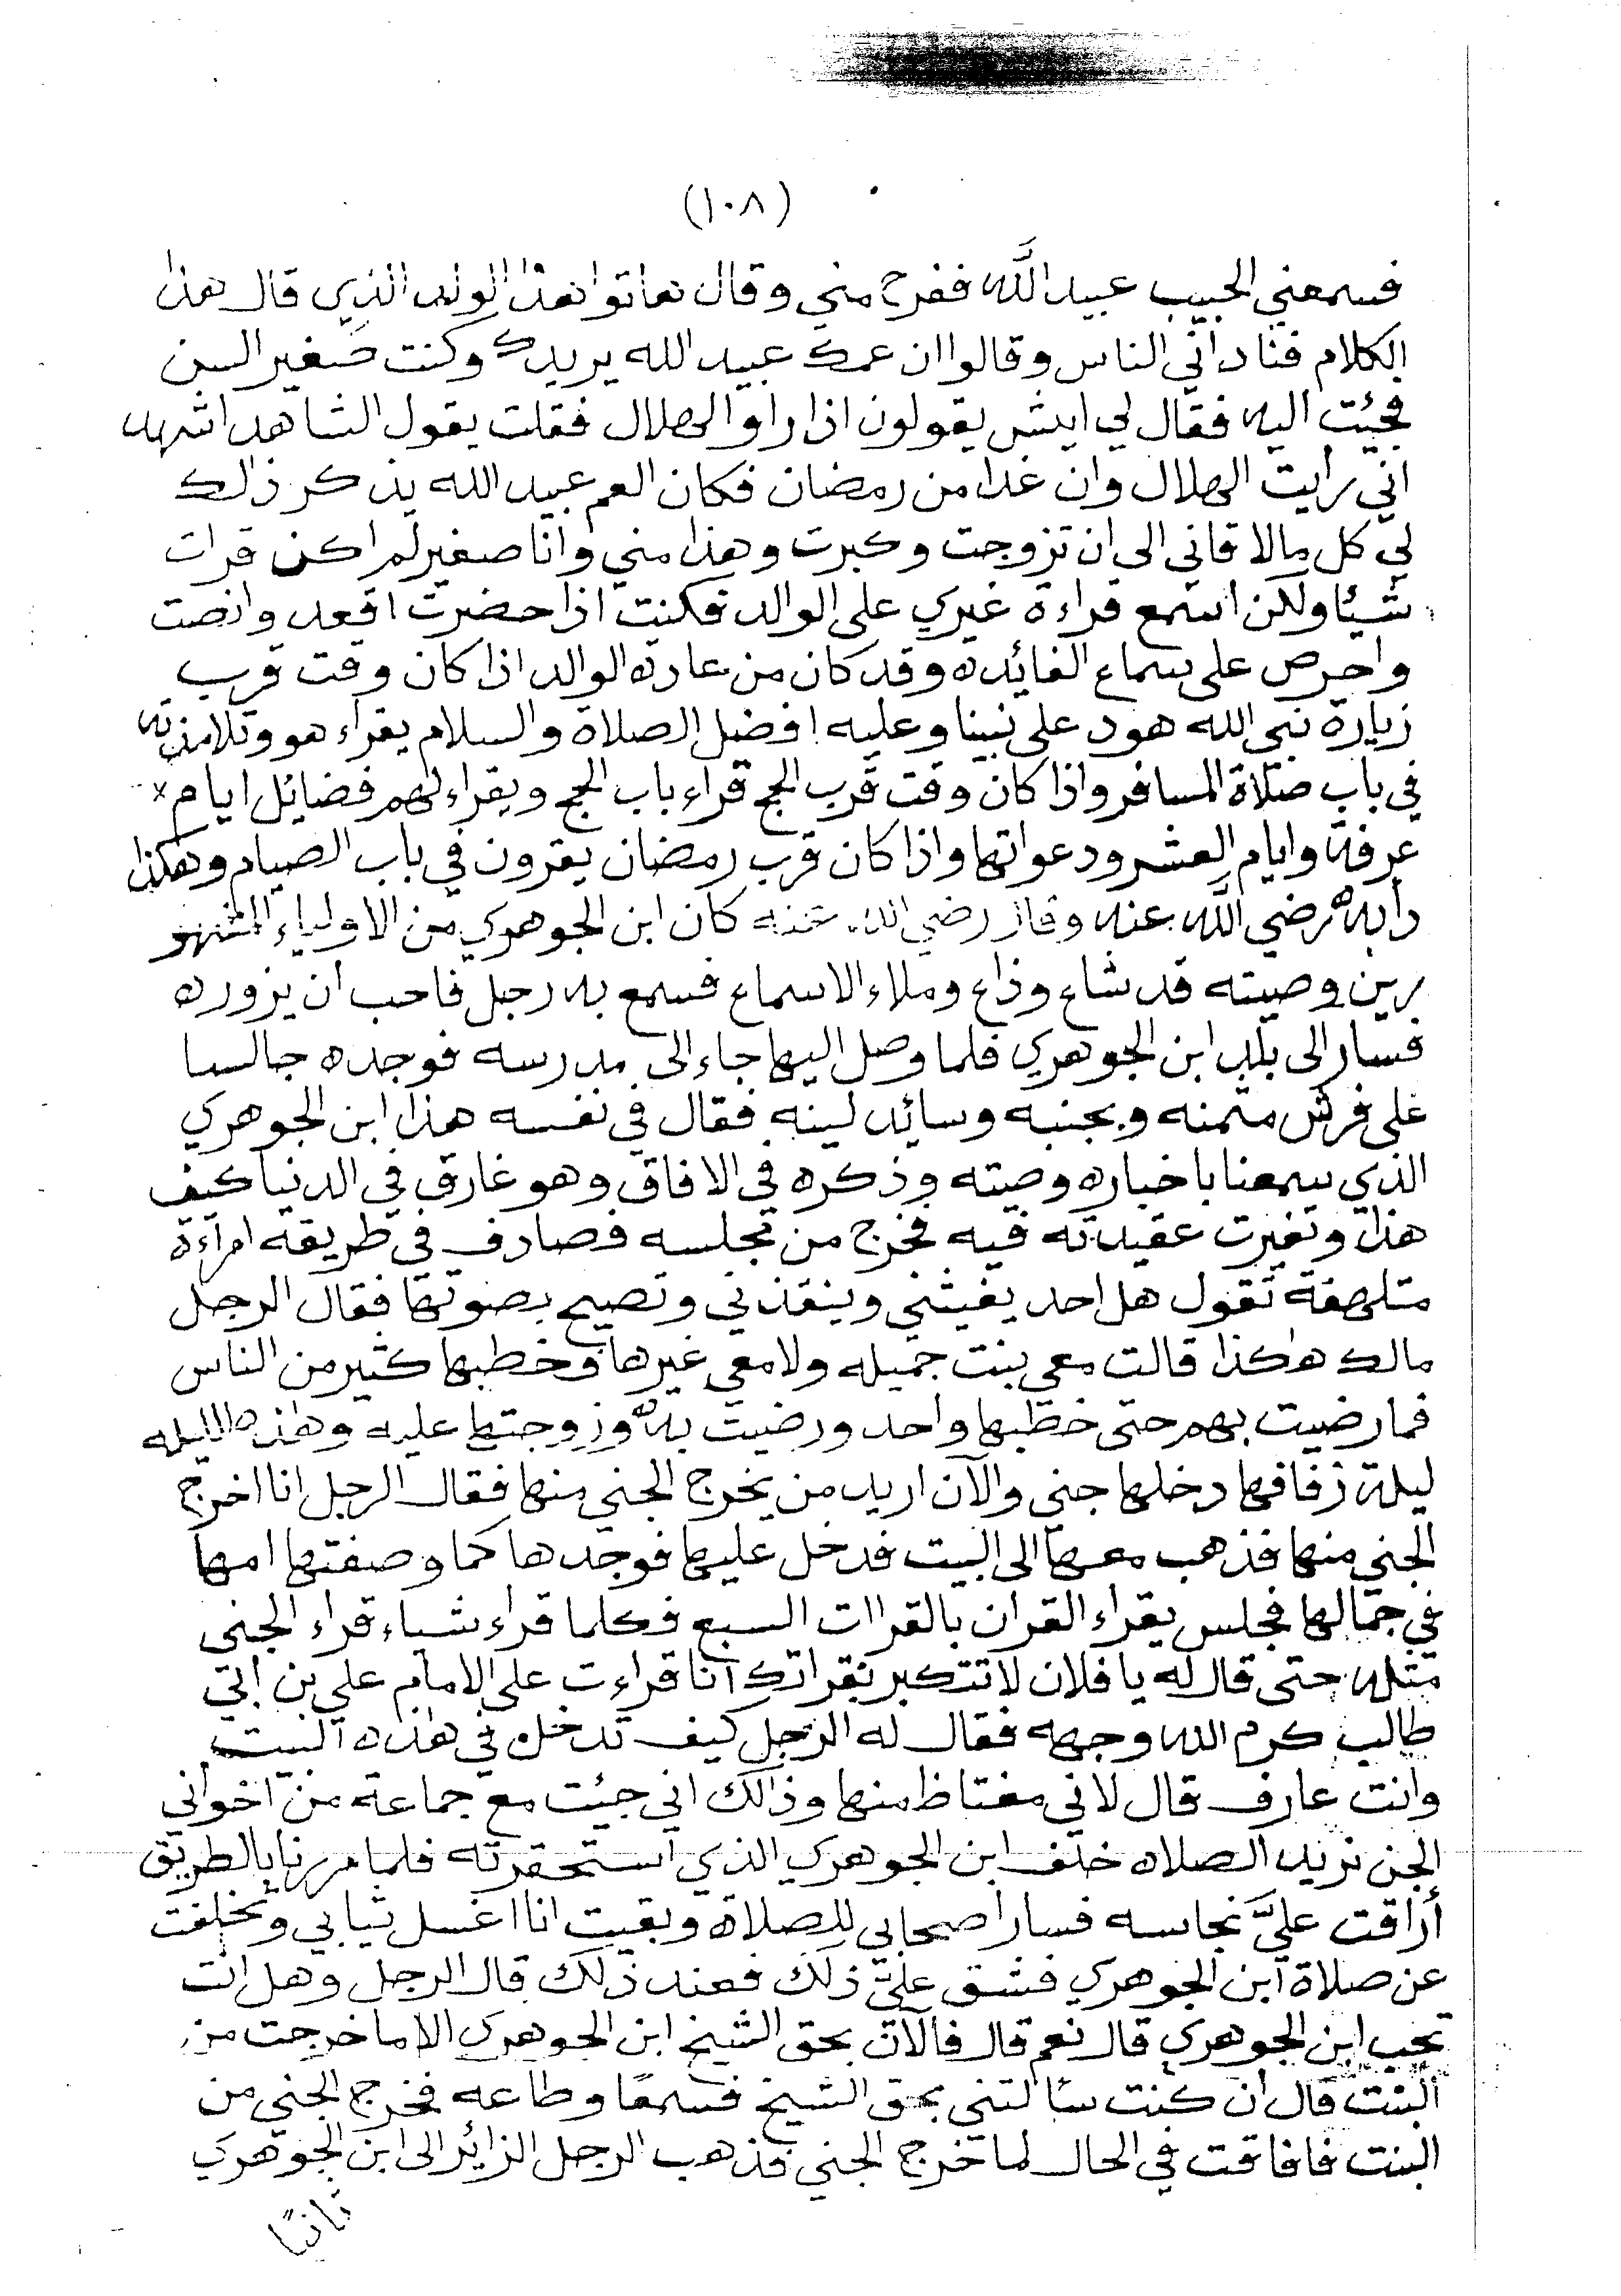 (١٠٨)
فسمعني الحبيب عبيد الله ففرح مني وقال هاتوا هذا الولد الذي قال هذا
الكلام فنادا اني الناس وقالوا ان عمك عبيد الله يريدك وكنت صغير السن
فجيئت اليه فقال لي ايش يقولون اذا راو الهلال فقلت يقول الشاهد اشهد
اني رايت الهلال وان غدا من رمضان فكان العم عبيد الله يذكر ذالك
لي كل ما لاقاني الى ان تزوجت وكبرت وهذا مني وانا صغير لم اكن قرات
شيئا ولكن اسمع قراءة غيري على الوالد فكنت اذا حضرت اقعد وانصت
واحرص على سماع الفائيده وقد كان من عادة الوالد اذا كان وقت قرب
زيارة نبي الله هود على نبينا وعليه افضل الصلاة والسلام يقراء هو وتلامذته
في باب صلاة المسافر واذا كان وقت قرب الحج قراء باب الحج ويقراء لهم فضائيل ايام×
عرفة وايام العشر ودعواتها واذا كان قرب رمضان يقرون في باب الصيام وهكذا
دابه رضي الله عنه وقال رضي الله عنه كان ابن الجوهري من الاولياء المشهو
رين وصيته قد شاع وذاع وملاء الاسماع فسمع به رجل فاحب ان يزوره
فسار الى بلد ابن الجوهري فلما وصل اليها جاء الى مدرسه فوجده جالسا
على فرش مثمنه وبجنبه وسائيد لينه فقال في نفسه هذا ابن الجوهري
الذي سمعنا باخباره وصيته وذكره في الافاق وهو غارق في الدنيا كيف
هذا وتغيرت عقيدته فيه فخرج من مجلسه فصادف في طريقه امراءة
متلهفة تقول هل احد يغيثني وينقذني وتصيح بصوتها فقال الرجل
مالك هاكذا قالت معي بنت جميله ولا معي غيرها وخطبها كثير من الناس
فما رضيت بهم حتى خطبها واحد ورضيت به وزوجتها عليه وهاذه الليله
ليلة زفافها دخلها جني والآن اريد من يخرج الجني منها فقال الرجل انا اخرج
الجني منها فذهب معها الى البيت فدخل عليها فوجدها كما وصفتها امها
في جمالها فجلس يقراء القران بالقرات السبع فكلما قراء شياء قراء الجني
مثله حتى قال له يا فلان لا تتكبر بقراتك انا قراءت على الامام علي بن ابي
طالب كرم الله وجهه فقال له الرجل كيف تدخل في هاذه البيت
وانت عارف قال لاني مغتاظ منها وذالك اني جيئت مع جماعة من اخواني
الجن نريد الصلاه خلف ابن الجوهري الذي استحقرته فلما مررنا بالطريق
أراقت عليّ نجاسه فسار اصحابي للصلاة وبقيت انا اغسل ثيابي وتخلفت
عن صلاة ابن الجوهري فشق عليّ ذلك فعند ذلك قال الرجل وهل انت
تحب ابن الجوهري قال نعم قال فالآن بحق الشيخ ابن الجوهري الا ما خرجت من
البنت قال ان كنت سألتني بحق الشيخ فسمعًا وطاعه فخرج الجني من
البنت فافاقت في الحال لما خرج الجني فذهب الرجل الزائير الى ابن الجوهري
ثانيًا